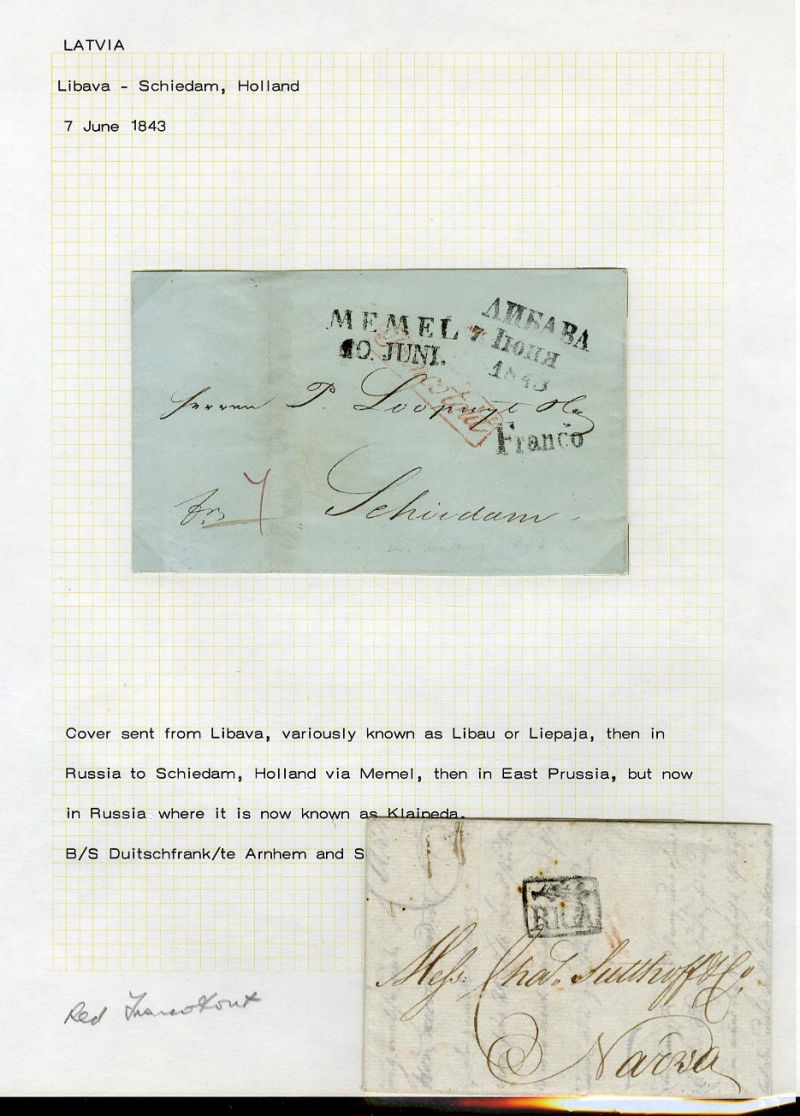 LATVIA
Libava - Schiedam, Holland
7 June 1843
MEMEL
10. JUNI.
ЛИБАВА
7 Iюня
1843
Herrn P. Loopuyt &
Franco
fr. 7
Schiedam
Cover sent from Libava, variously known as Libau or Liepaja, then in
Russia to Schiedam, Holland via Memel, then in East Prussia, but now
in Russia where it is now known as Klaipeda.
B/S Duitschfrank/te Arnhem and S
RIGA
Mess: Chas. Sutthoff & Co.
Narva
Red Francotout